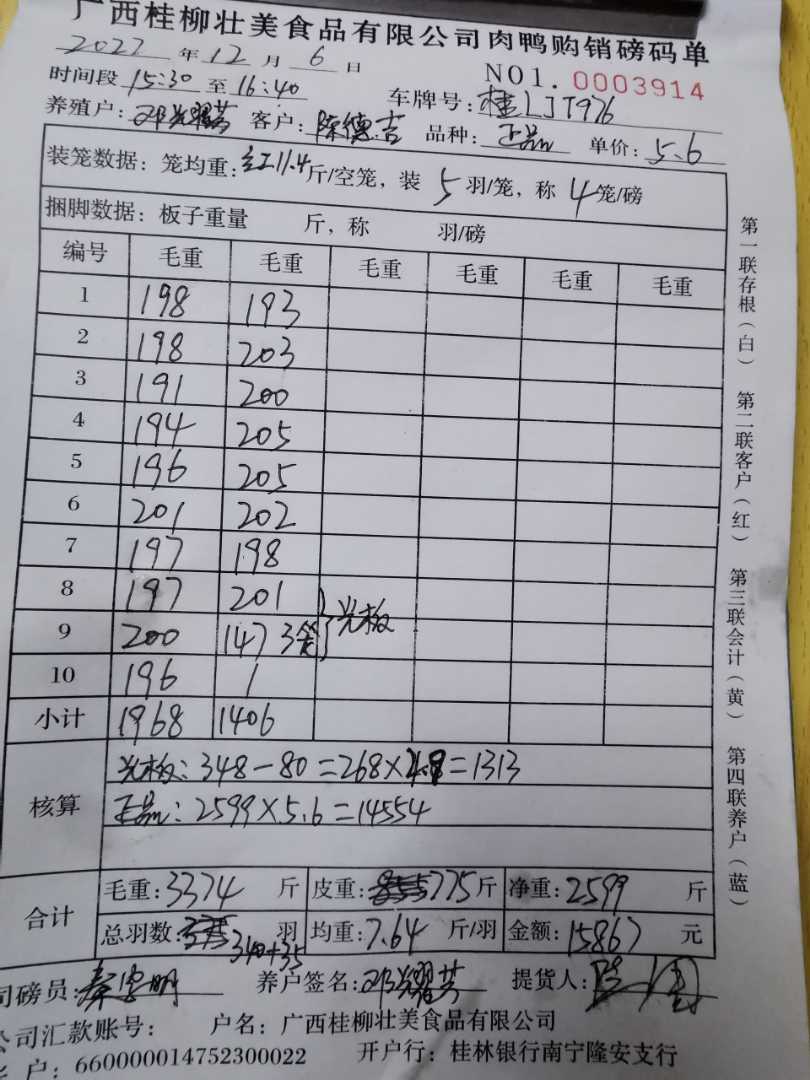 广西桂柳壮美食品有限公司肉鸭购销磅码单
2022年12月6日 NO1. 0003914
时间段15:30至16:40 车牌号:桂LJT976
养殖户:邓光耀芬 客户:陈德吉 品种:正品 单价:5.6
装笼数据:笼均重:红11.4斤/空笼,装5羽/笼,称4笼/磅
捆脚数据:板子重量 斤,称 羽/磅
编号 毛重 毛重 毛重 毛重 毛重 毛重
1 198 193
2 198 203
3 191 200
4 194 205
5 196 205
6 201 202
7 197 198
8 197 201 }光板
9 200 147 3笼
10 196 /
小计 1968 1406
核算
光板:348-80=268×4.9=1313
正品:2599×5.6=14554
合计
毛重:3374斤 皮重:775斤 净重:2599斤
总羽数:340+35羽 均重:7.64斤/羽 金额:15867元
司磅员:秦 明 养户签名:邓光耀芬 提货人:陈
公司汇款账号: 户名:广西桂柳壮美食品有限公司
户:660000014752300022 开户行:桂林银行南宁隆安支行
第一联存根(白) 第二联客户(红) 第三联会计(黄) 第四联养户(蓝)